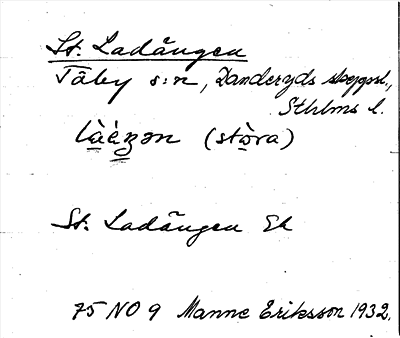 St. Ladängen
Täby s:n, Danderyds skeppsl.,
Sthlms l.
(stòra)
St. Ladängen Ek
75 NO 9 Manne Eriksson 1932.